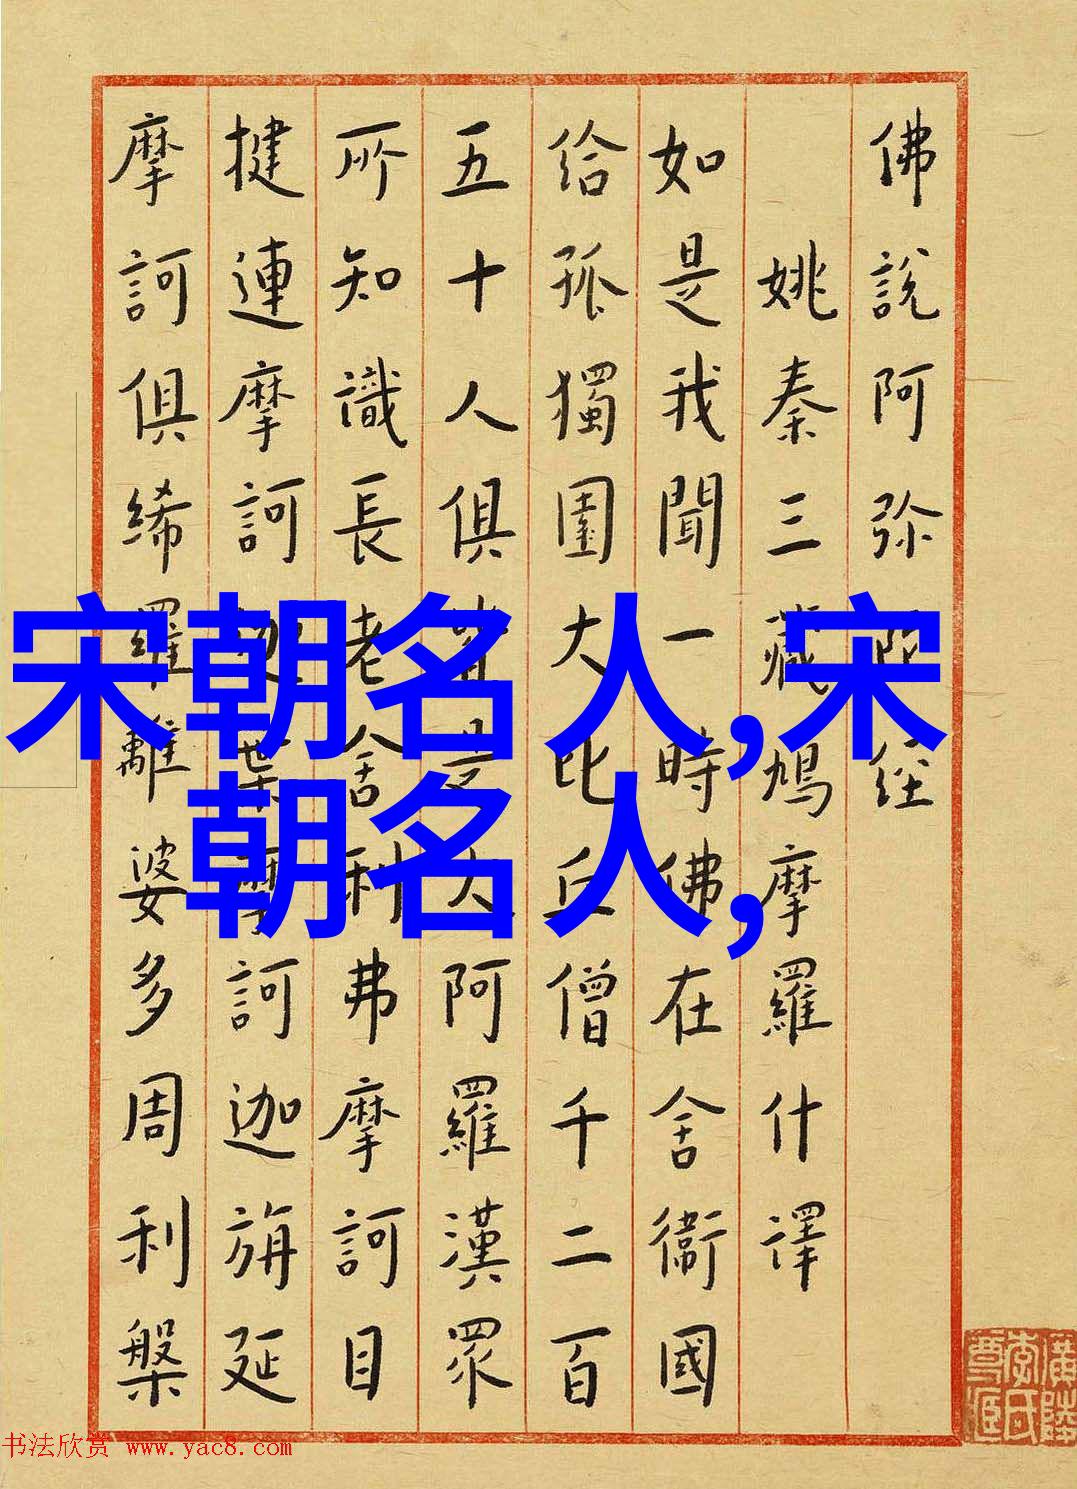 佛說阿弥陀经
姚秦三藏鳩摩羅什譯
如是我聞一時佛在舍衞國
给孤獨園大比丘僧千二百
五十人俱皆是大阿羅漢眾
所知識長老舍利弗摩訶目
揵連摩訶迦葉摩訶迦旃延
摩訶俱絺羅離婆多周利槃
宋朝名人,宋
朝名人,
书法欣赏 www.yac8.com